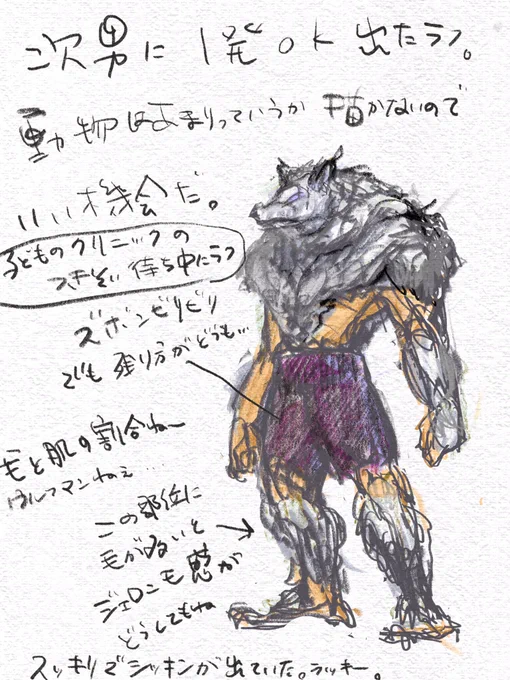 次男に1発OK出たラフ。
動物はあまりっていうか描かないので
いい機会だ。
子どものクリニックの
つきそい待ち中にラフ
ズボンビリビリ
でも残り方がどうも…
毛と肌の割合ねー
ウルフマンねぇ…
この部位に
毛がないと
ジェロニモ感が
どうしてもね
スッキリでシッキンが出ていた。ラッキー。